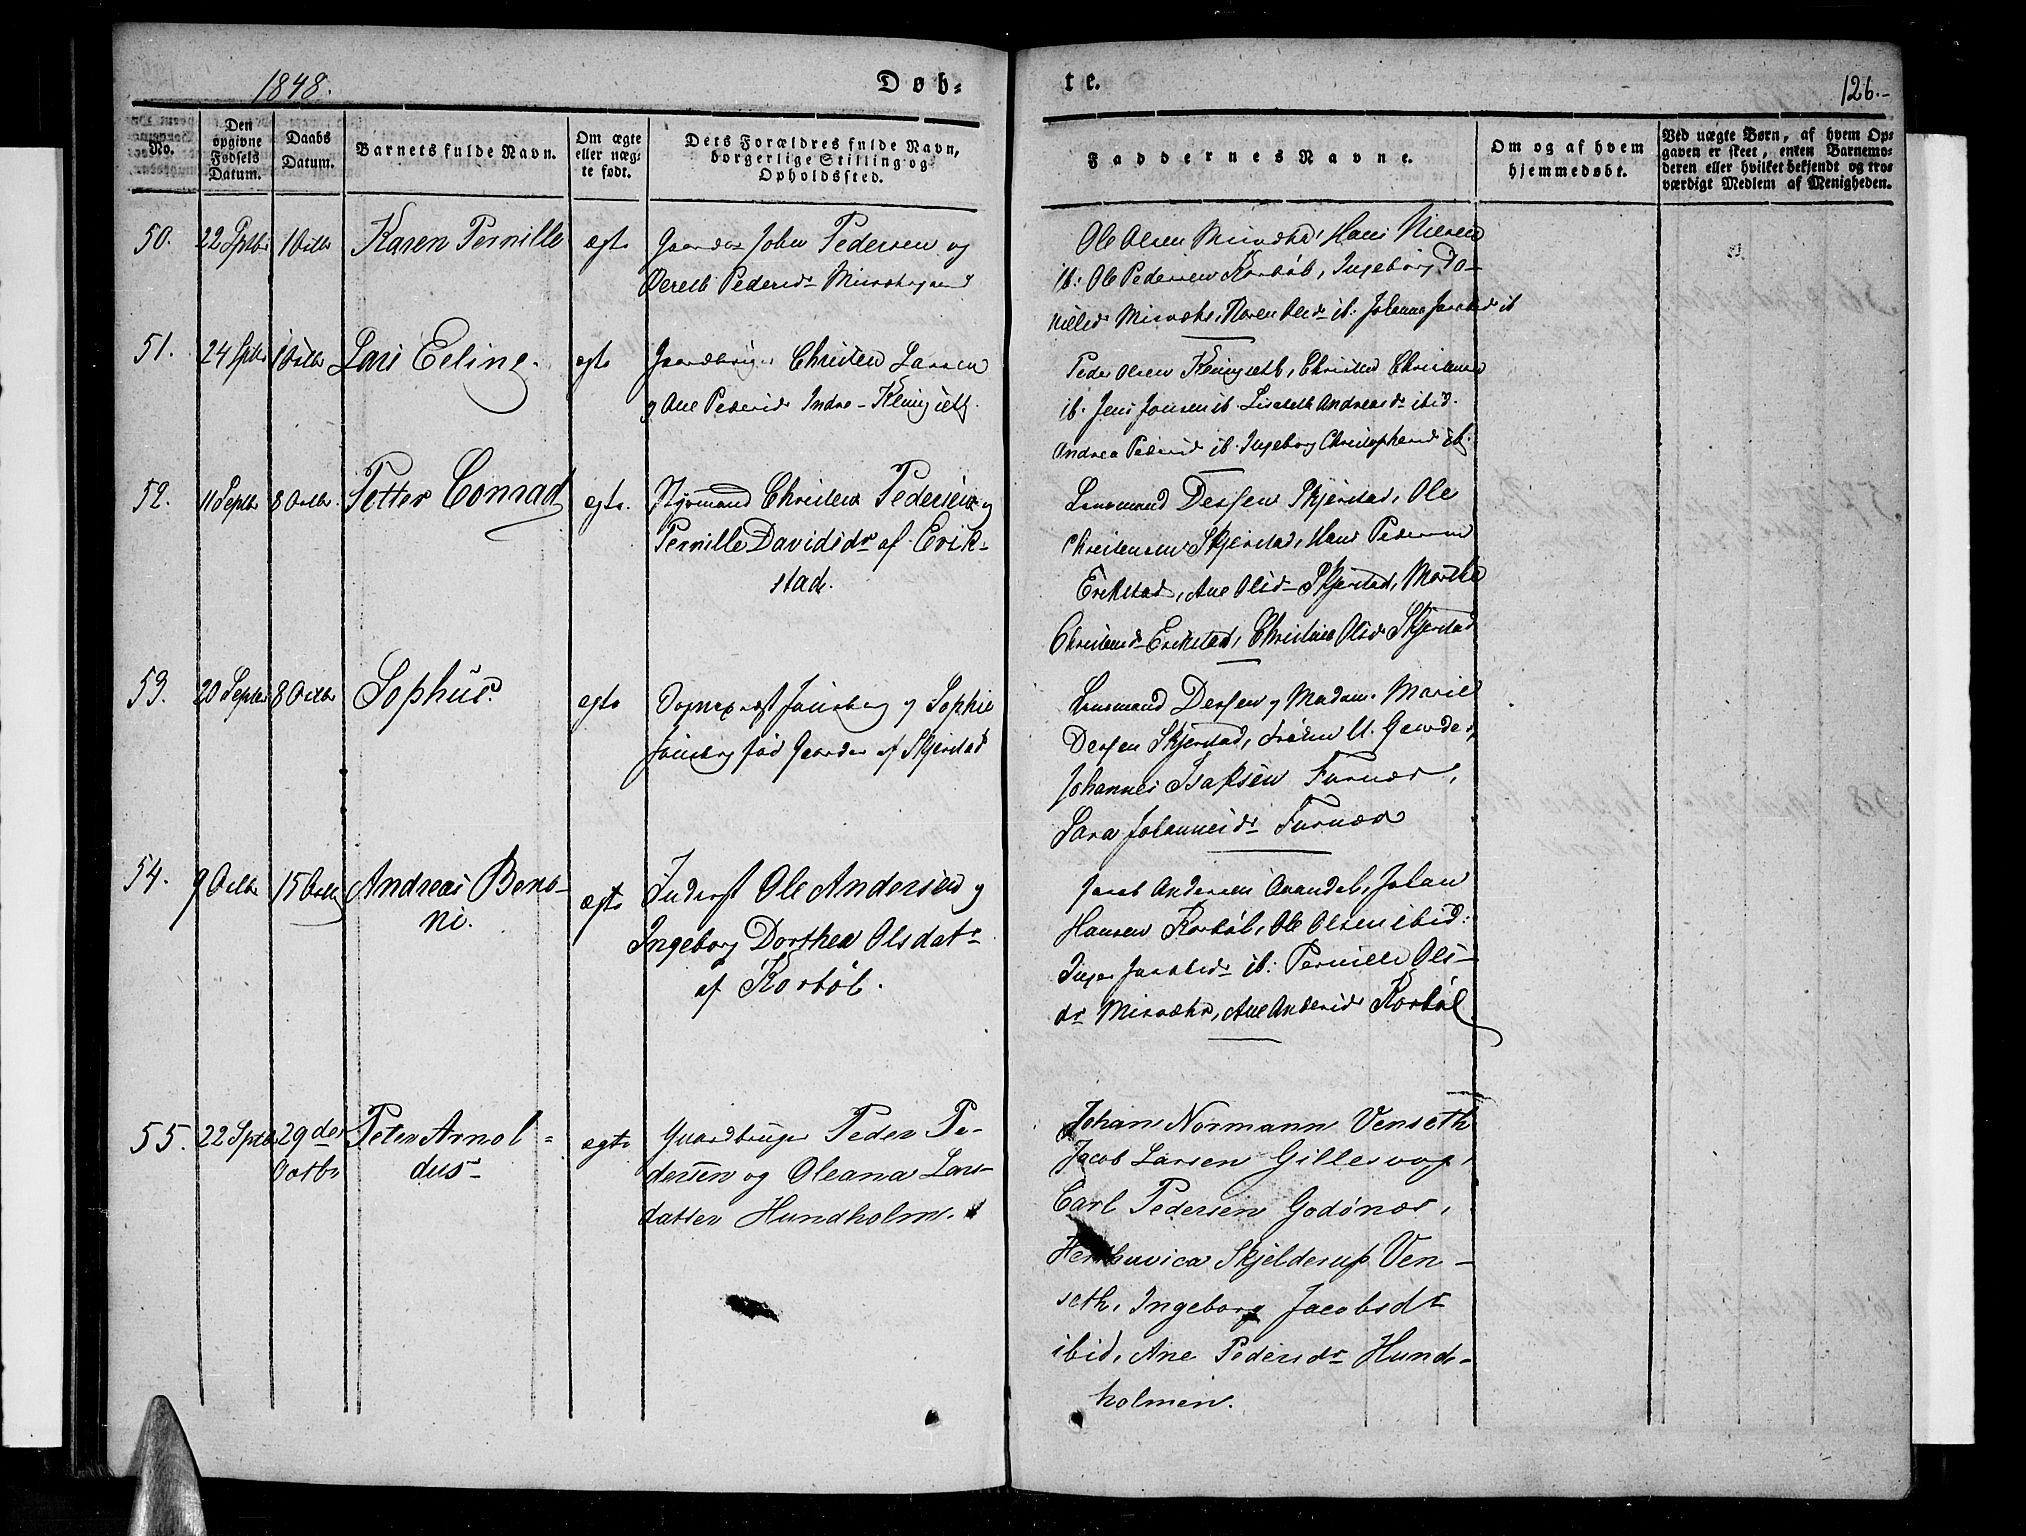 1848.
Døb-
te.
126.-
No.
Den
opgivne
Fødsels
Datum.
Daabs
Datum.
Barnets fulde Navn.
Om ægte
eller uæg-
te født.
Dets Forældres fulde Navn,
borgerlige Stilling og
Opholdssted.
Faddernes Navne.
Om og af hvem
hjemmedøbt.
Ved uægte Børn, af hvem Op-
gaven er skeet, enten Barnemo-
deren eller hvilket bekjendt og tro-
værdigt Medlem af Menigheden.
50.
22 Sptbr
1 Octbr
Karen Pernille
ægte
John Pedersen og
Pedersdr
Ole Olsen Misvær, Hans Nilsen
ib: Ole Pedersen Korbøl, Ingeborg Da-
Misvær, Maren Olsdr ib: Johanna Jacobsd ib
51.
24 Sptbr
1 Octbr
Lars Eeling.
egte
Gaardbruger Christen Larsen
og Ane Pedersdr Indre-Klungset.
Peder Olsen Klungset, Christen Christensen
ib. Jens Jonsen ib. Lisebeth Andreasdr ibid.
Andrea Pedersd ib. Ingeborg Christophersd ib.
52.
11 Septbr
8 Octbr.
Petter Conrad
egte.
Styrmand Christen Pedersen og
Pernille Davidsdr af Erik-
stad.
Lensmand Skjerstad, Ole
Christensen Skjerstad, Hans Pedersen
Erikstad, Ane Olsd Skjerstad, Marthe
Christensd Erikstad, Christine Olsdr Skjerstad
53.
20 Septbr
8 Octbr
Sophus.
egte
Sognepræst Jonsberg og Sophie
Jonsberg fød af Skjerstad
Lensmand og Madam Marie
Skjerstad, Frøken
Johannes Isaksen Furnæs,
Sara Johannesdr Furnæs
54.
9 Octbr
15 Octbr
Andreas Beno-
ni.
ægte
Inderst Ole Andersen og
Ingeborg Dorthea Olsdatr
af Korbøl.
Jacob Andersen Johan
Hansen Korbøl, Ole Olsen ibid:
Inger Jacobsdr ib: Pernille Ols-
dr Misvær, Ane Andersdr Korbøl
55.
22 Sptbr
29de
Octbr
Peter Arnol-
dus
egte
Gaardbruger Peder Pe-
dersen og Oleana Lars-
datter Hundholm.
Johan Normann Venseth
Jacob Larsen Gillesvag,
Carl Pedersen Godønæs,
Skjelderup Ven-
seth, Ingeborg Jacobsdr
ibid, Ane Pedersdr Hund-
holmen.